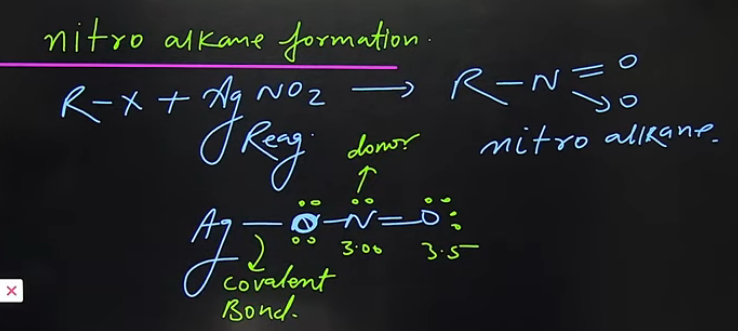 nitro alkane formation.
R-X + AgNO2 → R-N=O
→O
Reag.
nitro alkane.
donor
Ag-O-N=O
3.00 3.5
covalent
Bond.